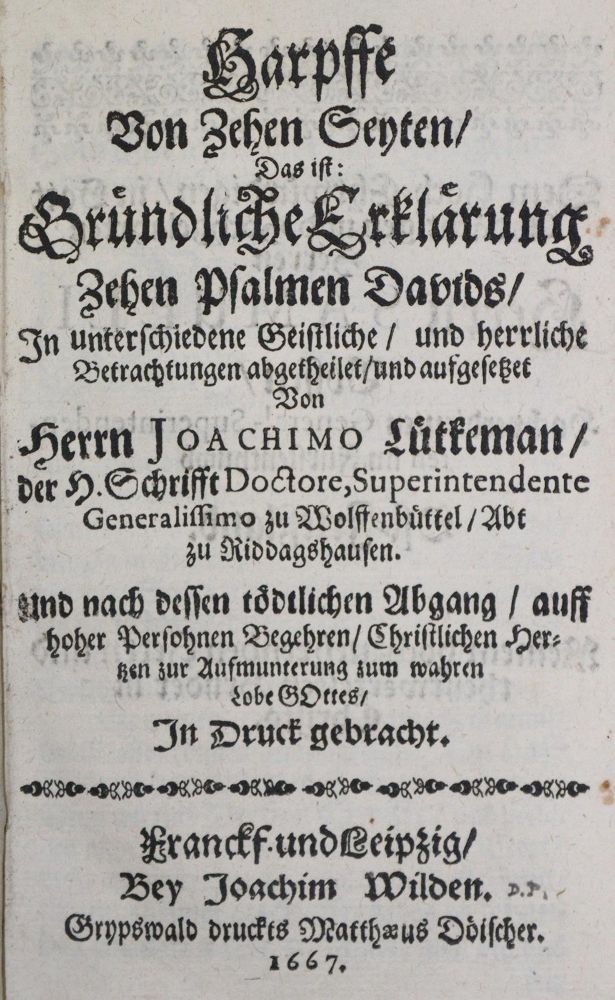 Harpffe
Von Zehen Seyten/
Das ist:
Gründliche Erklärung
Zehen Psalmen Davids/
In unterschiedene Geistliche/ und herrliche
Betrachtungen abgetheilet/und aufgesetzet
Von
Herrn JOACHIMO Lütkeman/
der H. Schrifft Doctore, Superintendente
Generalissimo zu Wolffenbüttel/Abt
zu Riddagshausen.
Und nach dessen tödtlichen Abgang/ auff
hoher Persohnen Begehren/ Christlichen Her-
tzen zur Aufmunterung zum wahren
Lobe GOttes/
In Druck gebracht.
Franckf. und Leipzig/
Bey Joachim Wilden. D.P.
Grypswald druckts Matthæus Döischer.
1667.